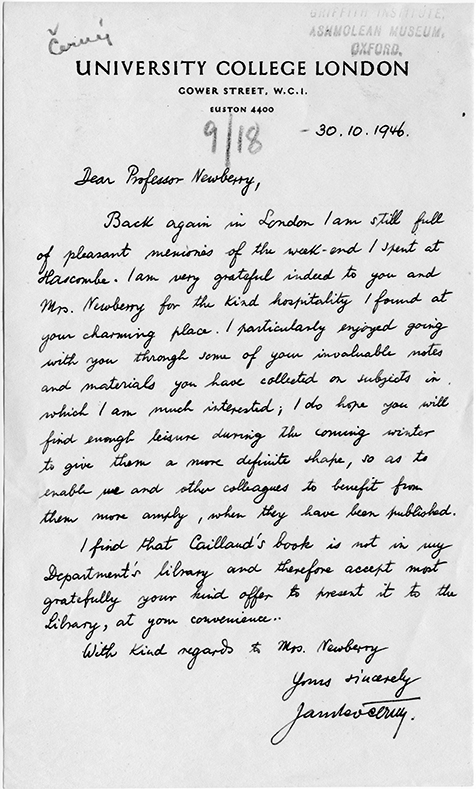 Černý
GRIFFITH INSTITUTE,
ASHMOLEAN MUSEUM,
OXFORD.
UNIVERSITY COLLEGE LONDON
GOWER STREET, W.C.I.
EUSTON 4400
9/18
- 30.10.1946.
Dear Professor Newberry,
Back again in London I am still full
of pleasant memories of the week-end I spent at
Hascombe. I am very grateful indeed to you and
Mrs. Newberry for the kind hospitality I found at
your charming place. I particularly enjoyed going
with you through some of your invaluable notes
and materials you have collected on subjects in
which I am much interested; I do hope you will
find enough leisure during the coming winter
to give them a more definite shape, so as to
enable me and other colleagues to benefit from
them more amply, when they have been published.
I find that Cailland's book is not in my
Department's library and therefore accept most
gratefully your kind offer to present it to the
Library, at your convenience..
With kind regards to Mrs. Newberry
Yours sincerely
Jaroslav Černý.